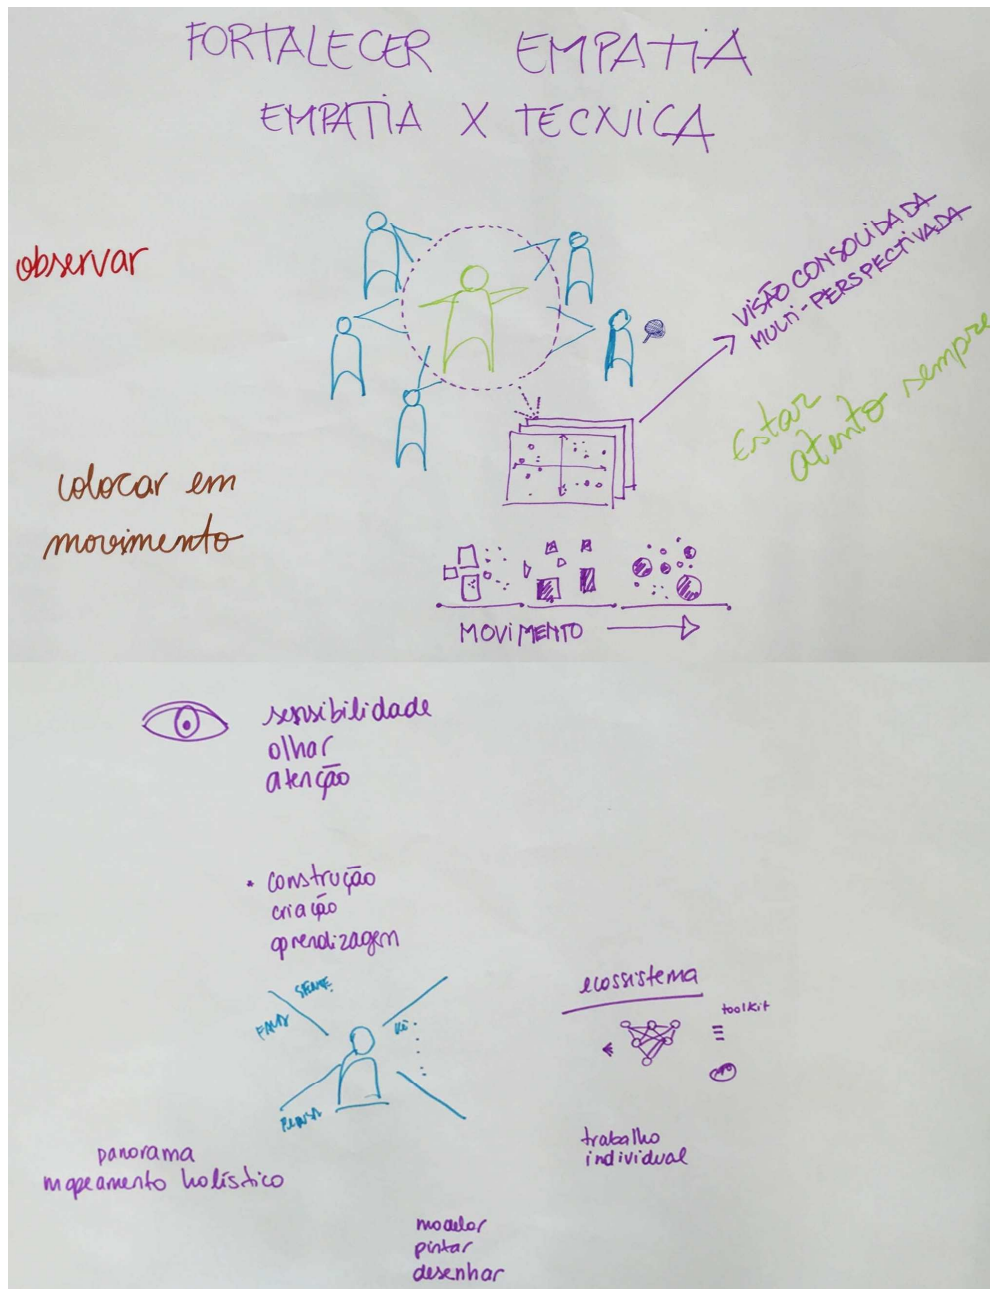 FORTALECER EMPATIA
EMPATIA X TÉCNICA
observar
VISÃO CONSOLIDADA
MULTI-PERSPECTIVADA
Estar
atento sempre
colocar em
movimento
MOVIMENTO
sensibilidade
olhar
atenção
• construção
criação
aprendizagem
SENTE
ecossistema
toolkit
trabalho
individual
panorama
mapeamento holístico
modelar
pintar
desenhar